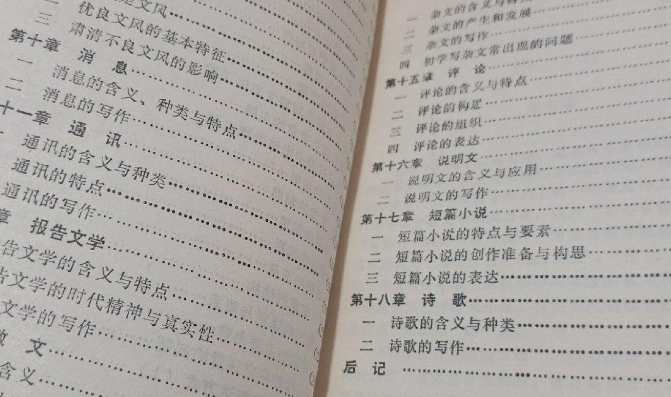 文风
二 优良文风的基本特征
三 肃清不良文风的影响
第十章 消息
一 消息的含义、种类与特点
二 消息的写作
十一章 通讯
通讯的含义与种类
通讯的特点
通讯的写作
章 报告文学
告文学的含义与特点
告文学的时代精神与真实性
文学的写作
文
含义
一 杂文的含义与特点
二 杂文的产生和发展
三 杂文的写作
四 初学写杂文常出现的问题
第十五章 评论
一 评论的含义与特点
二 评论的构思
三 评论的组织
四 评论的表达
第十六章 说明文
一 说明文的含义与应用
二 说明文的写作
第十七章 短篇小说
一 短篇小说的特点与要素
二 短篇小说的创作准备与构思
三 短篇小说的表达
第十八章 诗歌
一 诗歌的含义与种类
二 诗歌的写作
后记